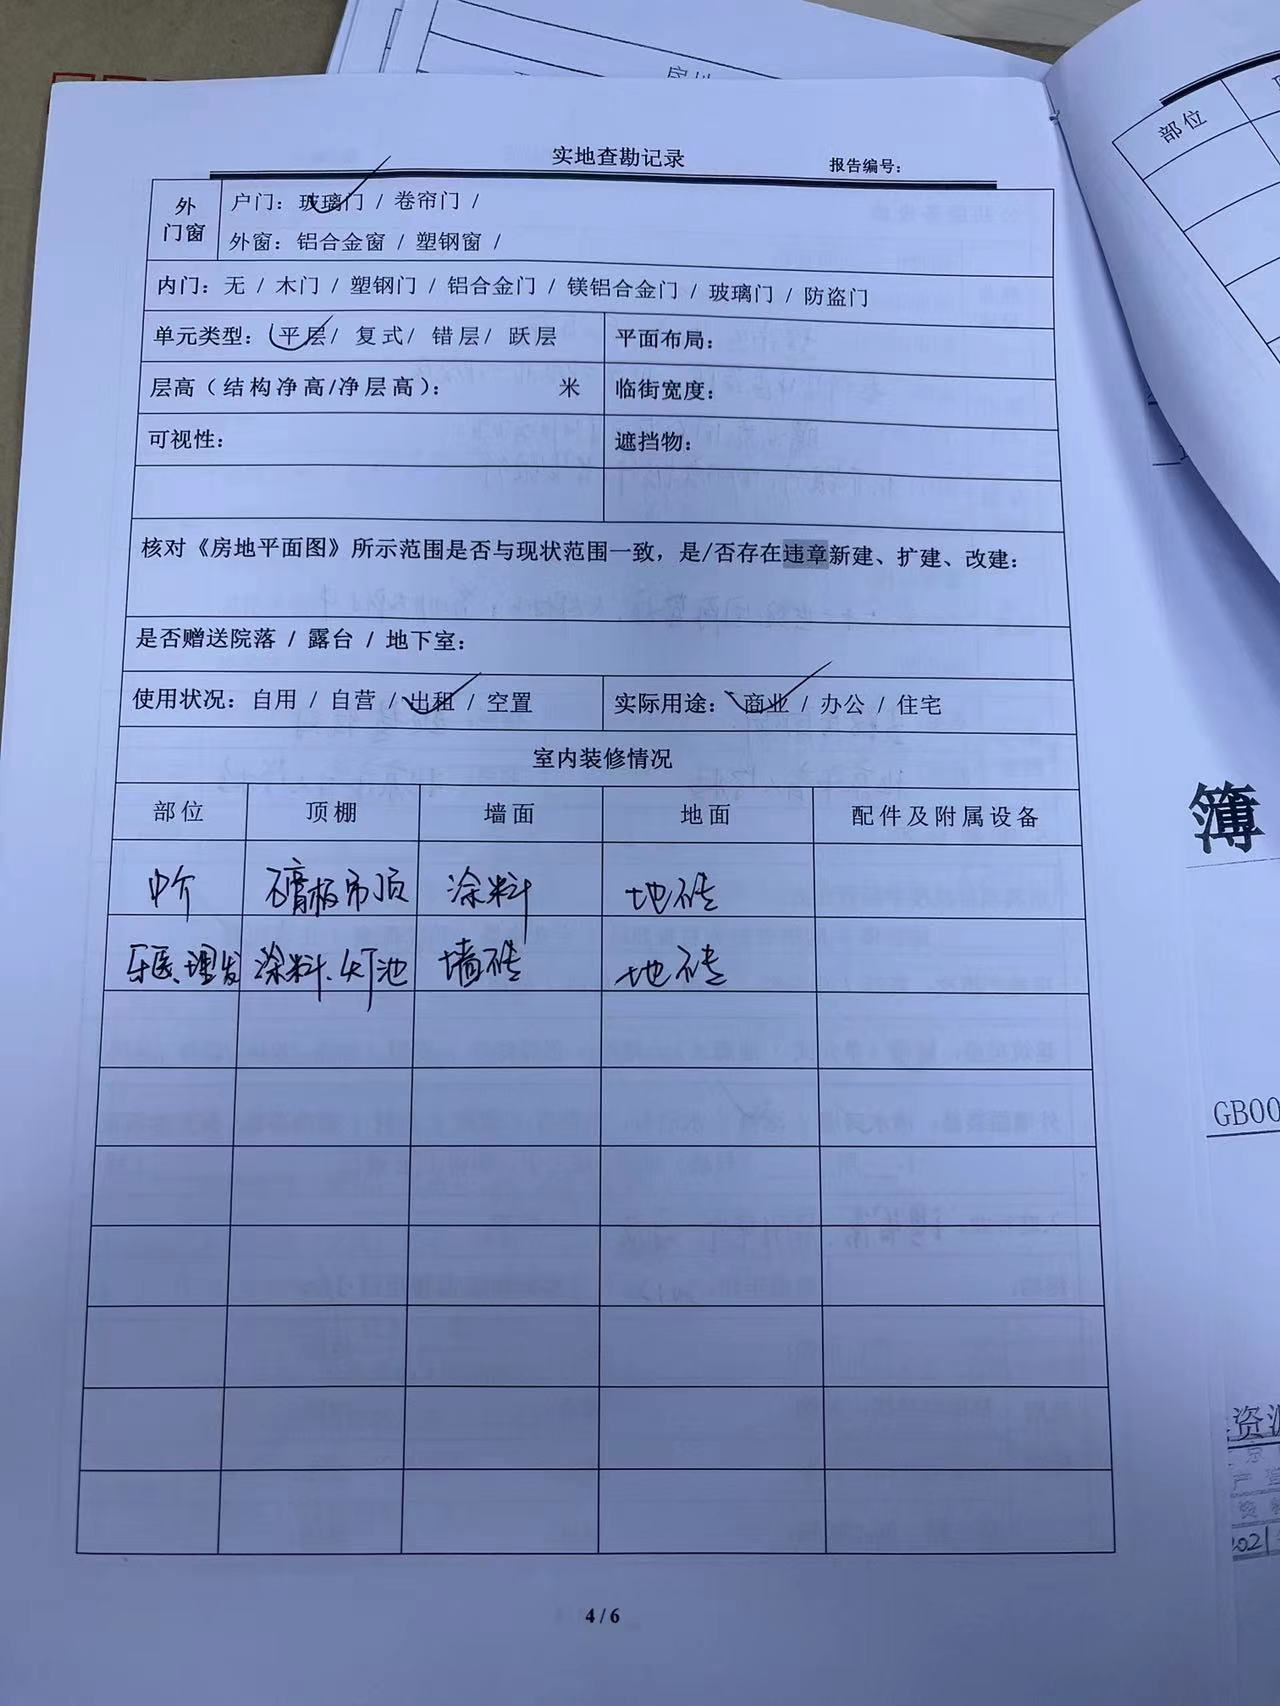 实地查勘记录
报告编号：
外门窗
户门：玻璃门 / 卷帘门 /
外窗：铝合金窗 / 塑钢窗 /
内门：无 / 木门 / 塑钢门 / 铝合金门 / 镁铝合金门 / 玻璃门 / 防盗门
单元类型：平层/ 复式/ 错层/ 跃层
平面布局：
层高（结构净高/净层高）： 米
临街宽度：
可视性：
遮挡物：
核对《房地平面图》所示范围是否与现状范围一致，是/否存在违章新建、扩建、改建：
是否赠送院落 / 露台 / 地下室：
使用状况：自用 / 自营 / 出租 / 空置
实际用途：商业 / 办公 / 住宅
室内装修情况
部位 顶棚 墙面 地面 配件及附属设备
中介 石膏板吊顶 涂料 地砖
牙医、理发 涂料、灯池 墙砖 地砖
4 / 6
部位
簿
GB00
资源
2021